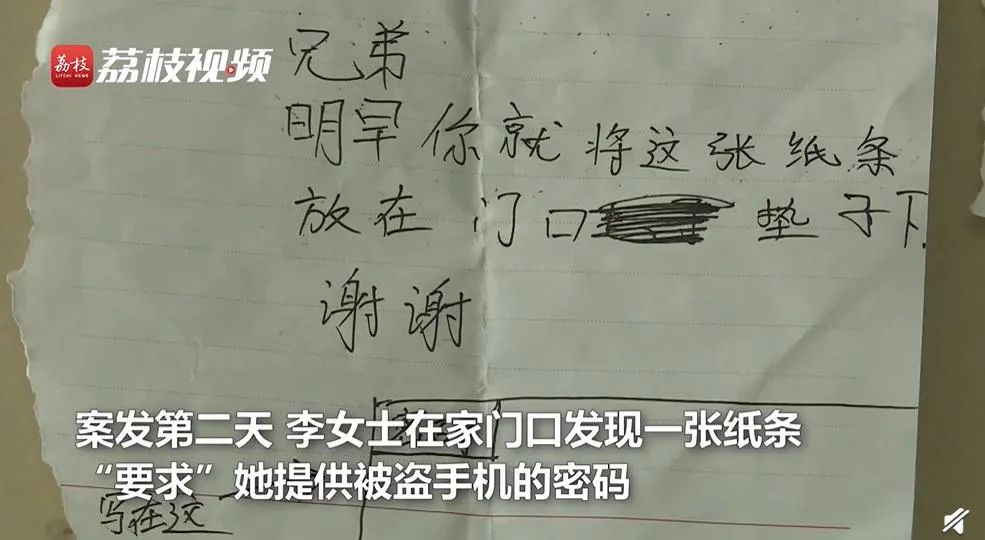 荔枝
LITCHI NEWS
荔枝视频
兄弟
明早你就将这张纸条
放在门口垫子下
谢谢
案发第二天 李女士在家门口发现一张纸条
“要求”她提供被盗手机的密码
写在这